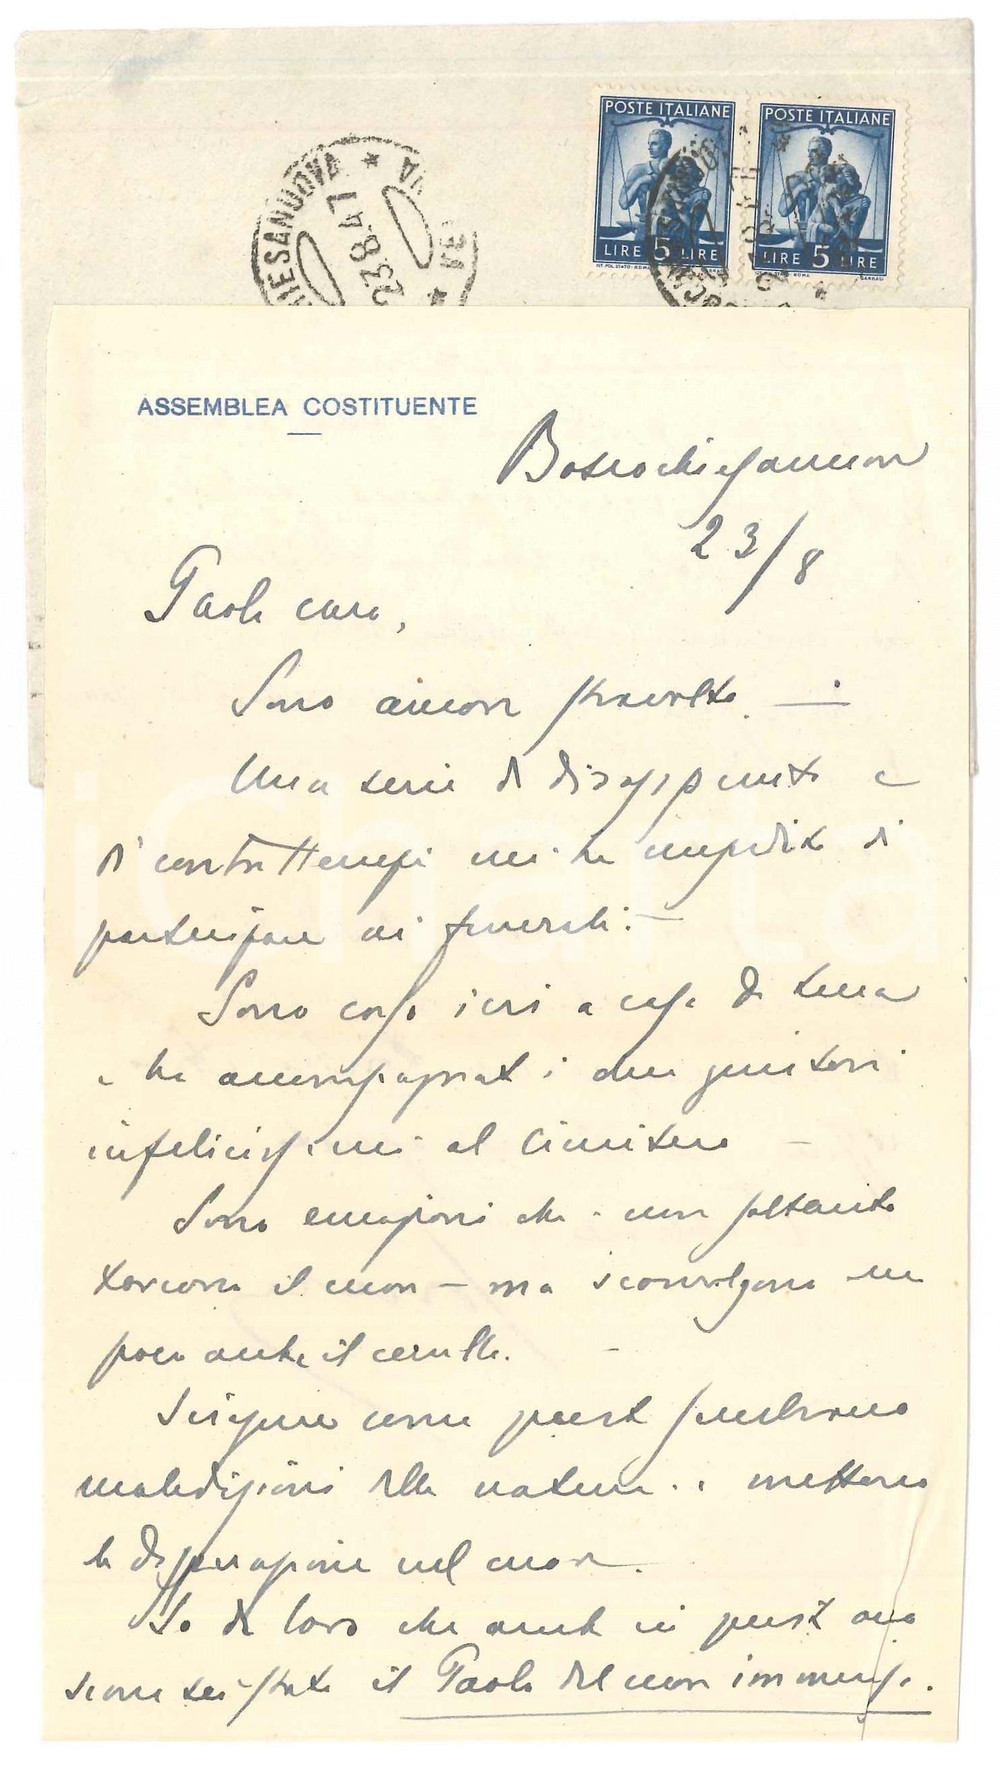 POSTE ITALIANE
POSTE ITALIANE
LIRE 5 LIRE
LIRE 5 LIRE
IESANUOVA
23.8.47
ASSEMBLEA COSTITUENTE
Boscochiesanuova
23/8
Paolo caro,
Sono ancora stravolto. —
Una serie di disappunti e
di contrattempi mi ha impedito di
partecipare ai funerali. —
Sono corso ieri a casa di
e ho accompagnato i due genitori
infelicissimi al Cimitero —
Sono emozioni che non soltanto
torcono il cuore — ma sconvolgono un
poco anche il cervello. —
Sciagure come queste sembrano
maledizioni della natura.. mettono
la disperazione nel cuore.
So da loro che anche in quest' ora
sei stato il Paolo dal cuore immenso.
iCharta